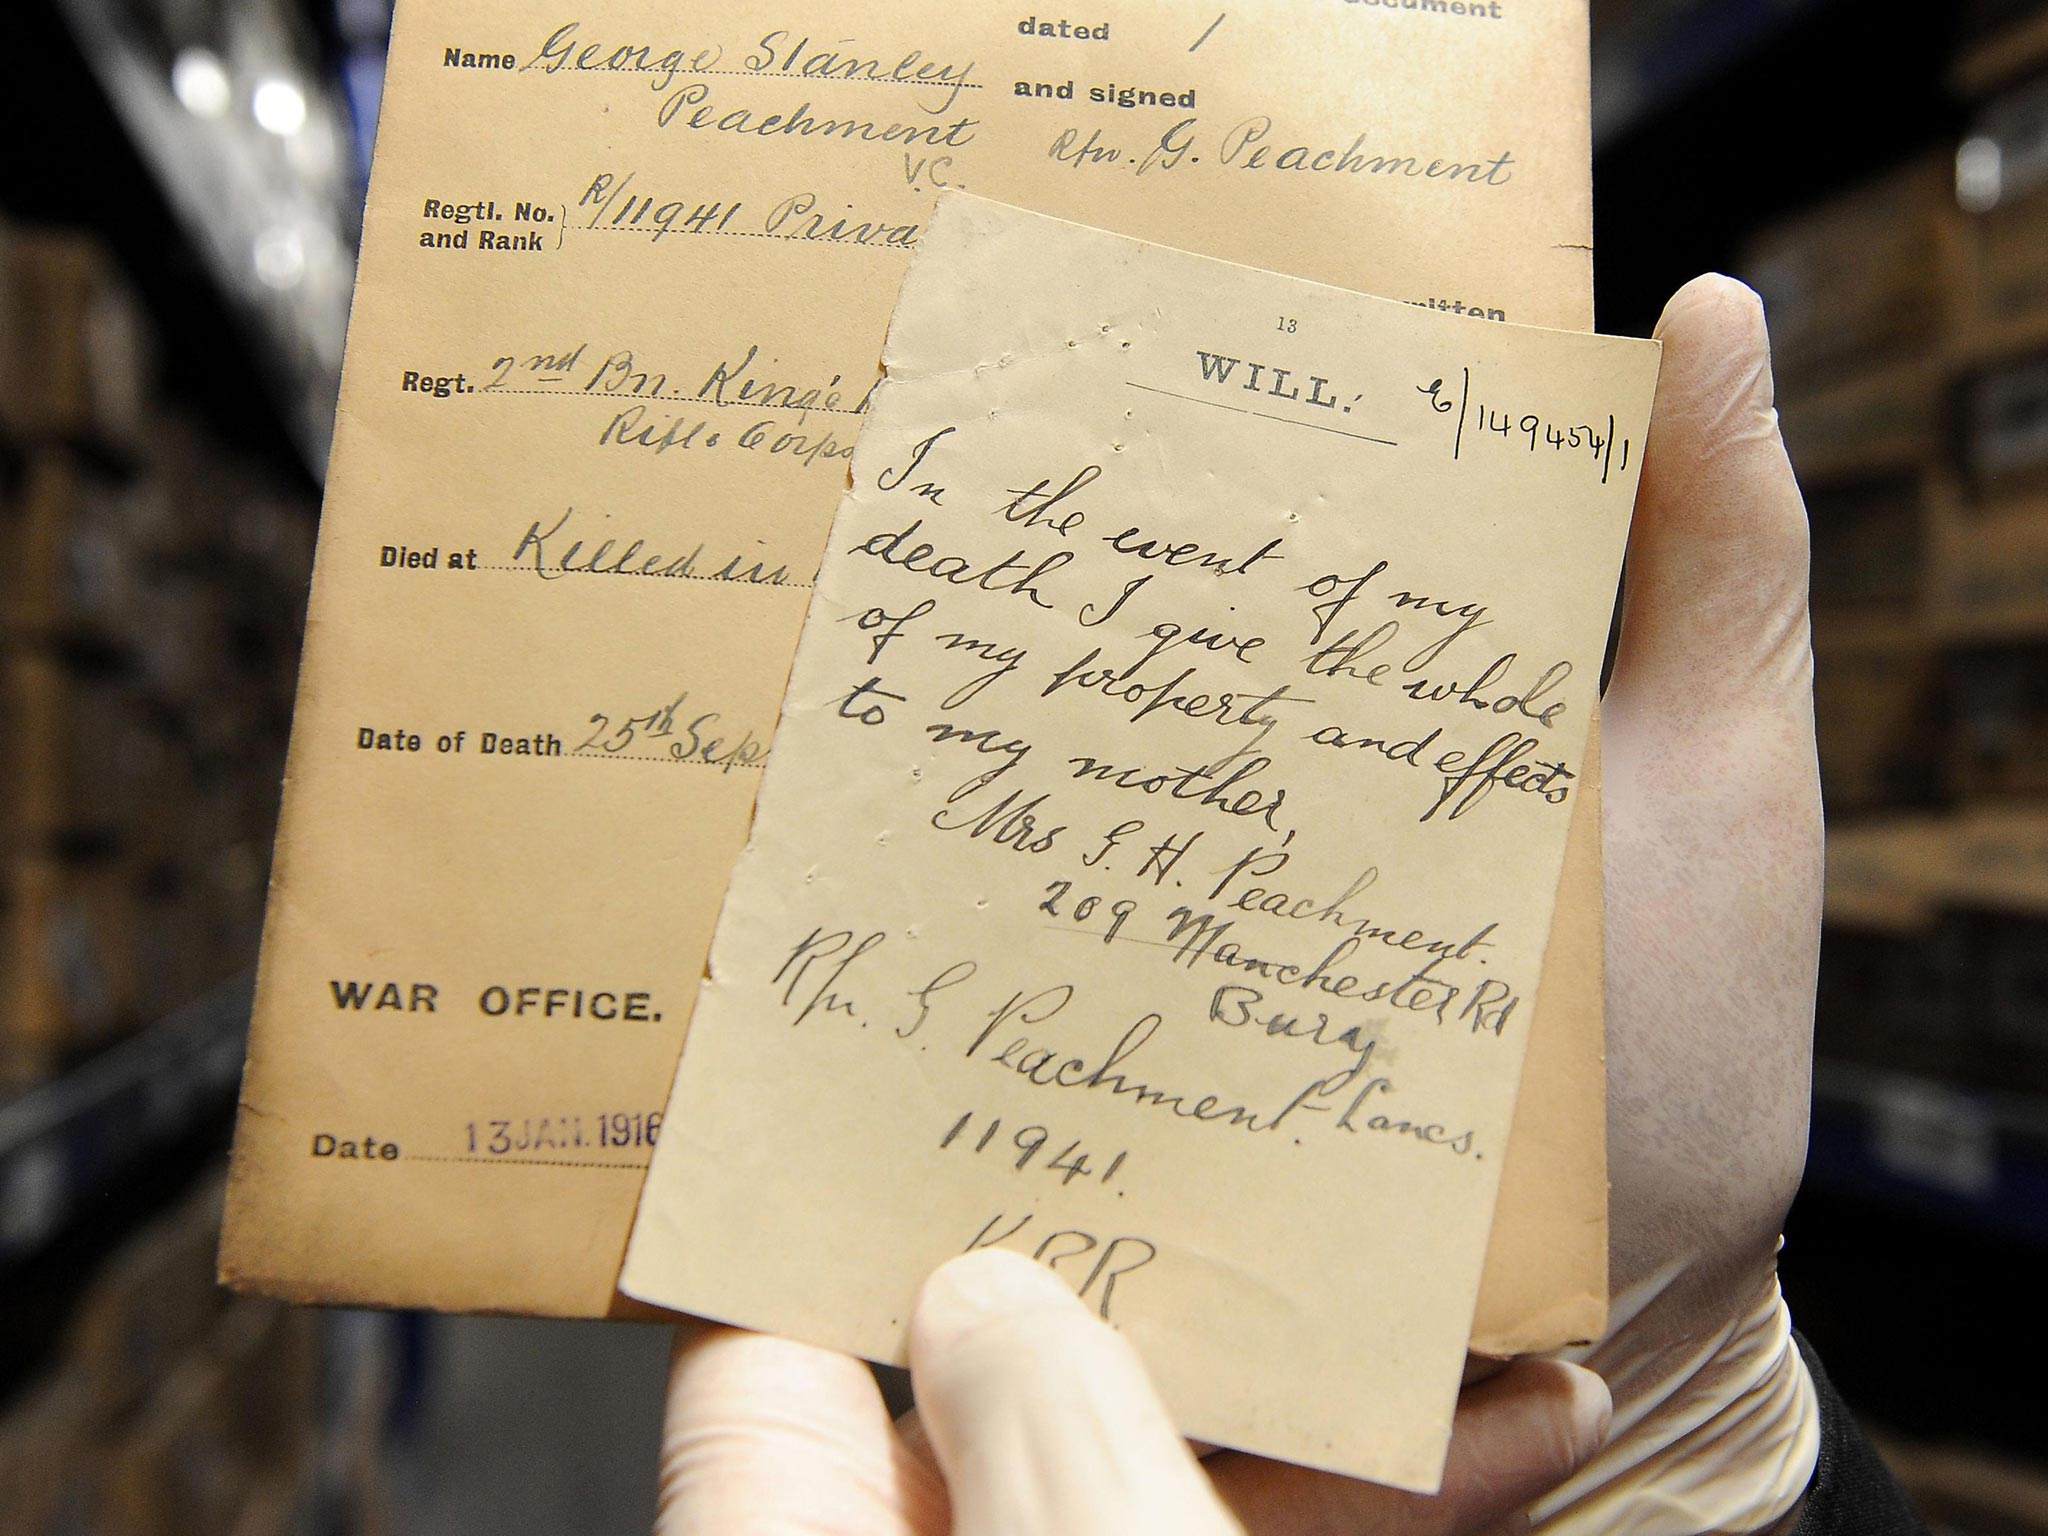 document
dated /
Name George Stanley
and signed
Peachment
V.C.
Rfn. G. Peachment
Regtl. No.
and Rank
R/11941 Priva
Regt. 2nd Bn. King's
Rifle Corps
Died at Killed in
Date of Death 25th Sep
WAR OFFICE.
Date 13 JAN. 1916
written
13
WILL.
E/149454/1
In the event of my
death I give the whole
of my property and effects
to my mother,
Mrs G. H. Peachment.
209 Manchester Rd
Bury
Lancs.
Rfn. G. Peachment.
11941.
KRR